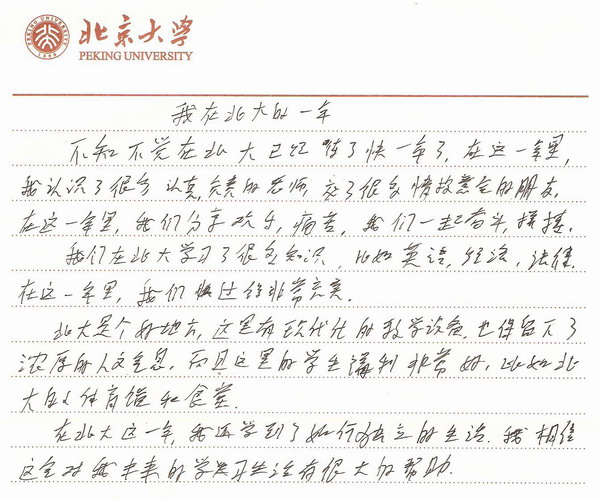 北京大学
PEKING UNIVERSITY
PEKING UNIVERSITY
1898
我在北大的一年
不知不觉在北大已经待了快一年了，在这一年里，
我认识了很多认真负责的老师，交了很多情投意合的朋友。
在这一年里，我们分享欢乐，痛苦，我们一起奋斗，拼搏。
我们在北大学习了很多知识，比如英语，经济，法律。
在这一年里，我们过得非常充实。
北大是个好地方，这里有现代化的教学设备，也保留了
浓厚的人文气息，而且这里的学生福利非常好，比如北
大的体育馆和食堂。
在北大这一年，我还学到了如何独立的生活。我相信
这会对我未来的学习生活有很大的帮助。